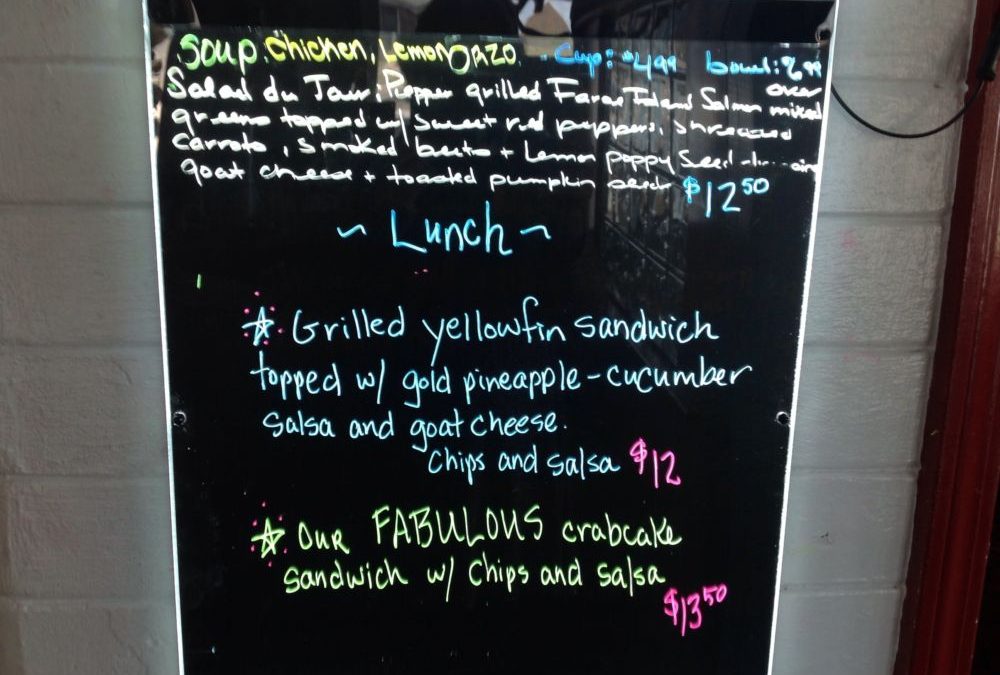 Soup. Chicken, Lemon ORZO. Cup: $4.99 bowl: 6.99
Salad du Jour: Pepper grilled Faroe Island Salmon over mixed
greens topped w/ sweet red peppers, shredded
carrots, smoked beets + Lemon poppy Seed
goat cheese + toasted pumpkin seeds $12.50
~ Lunch ~
☆ Grilled yellowfin sandwich
topped w/ gold pineapple-cucumber
salsa and goat cheese.
Chips and salsa $12
☆ OUR FABULOUS crabcake
sandwich w/ chips and salsa
$13.50